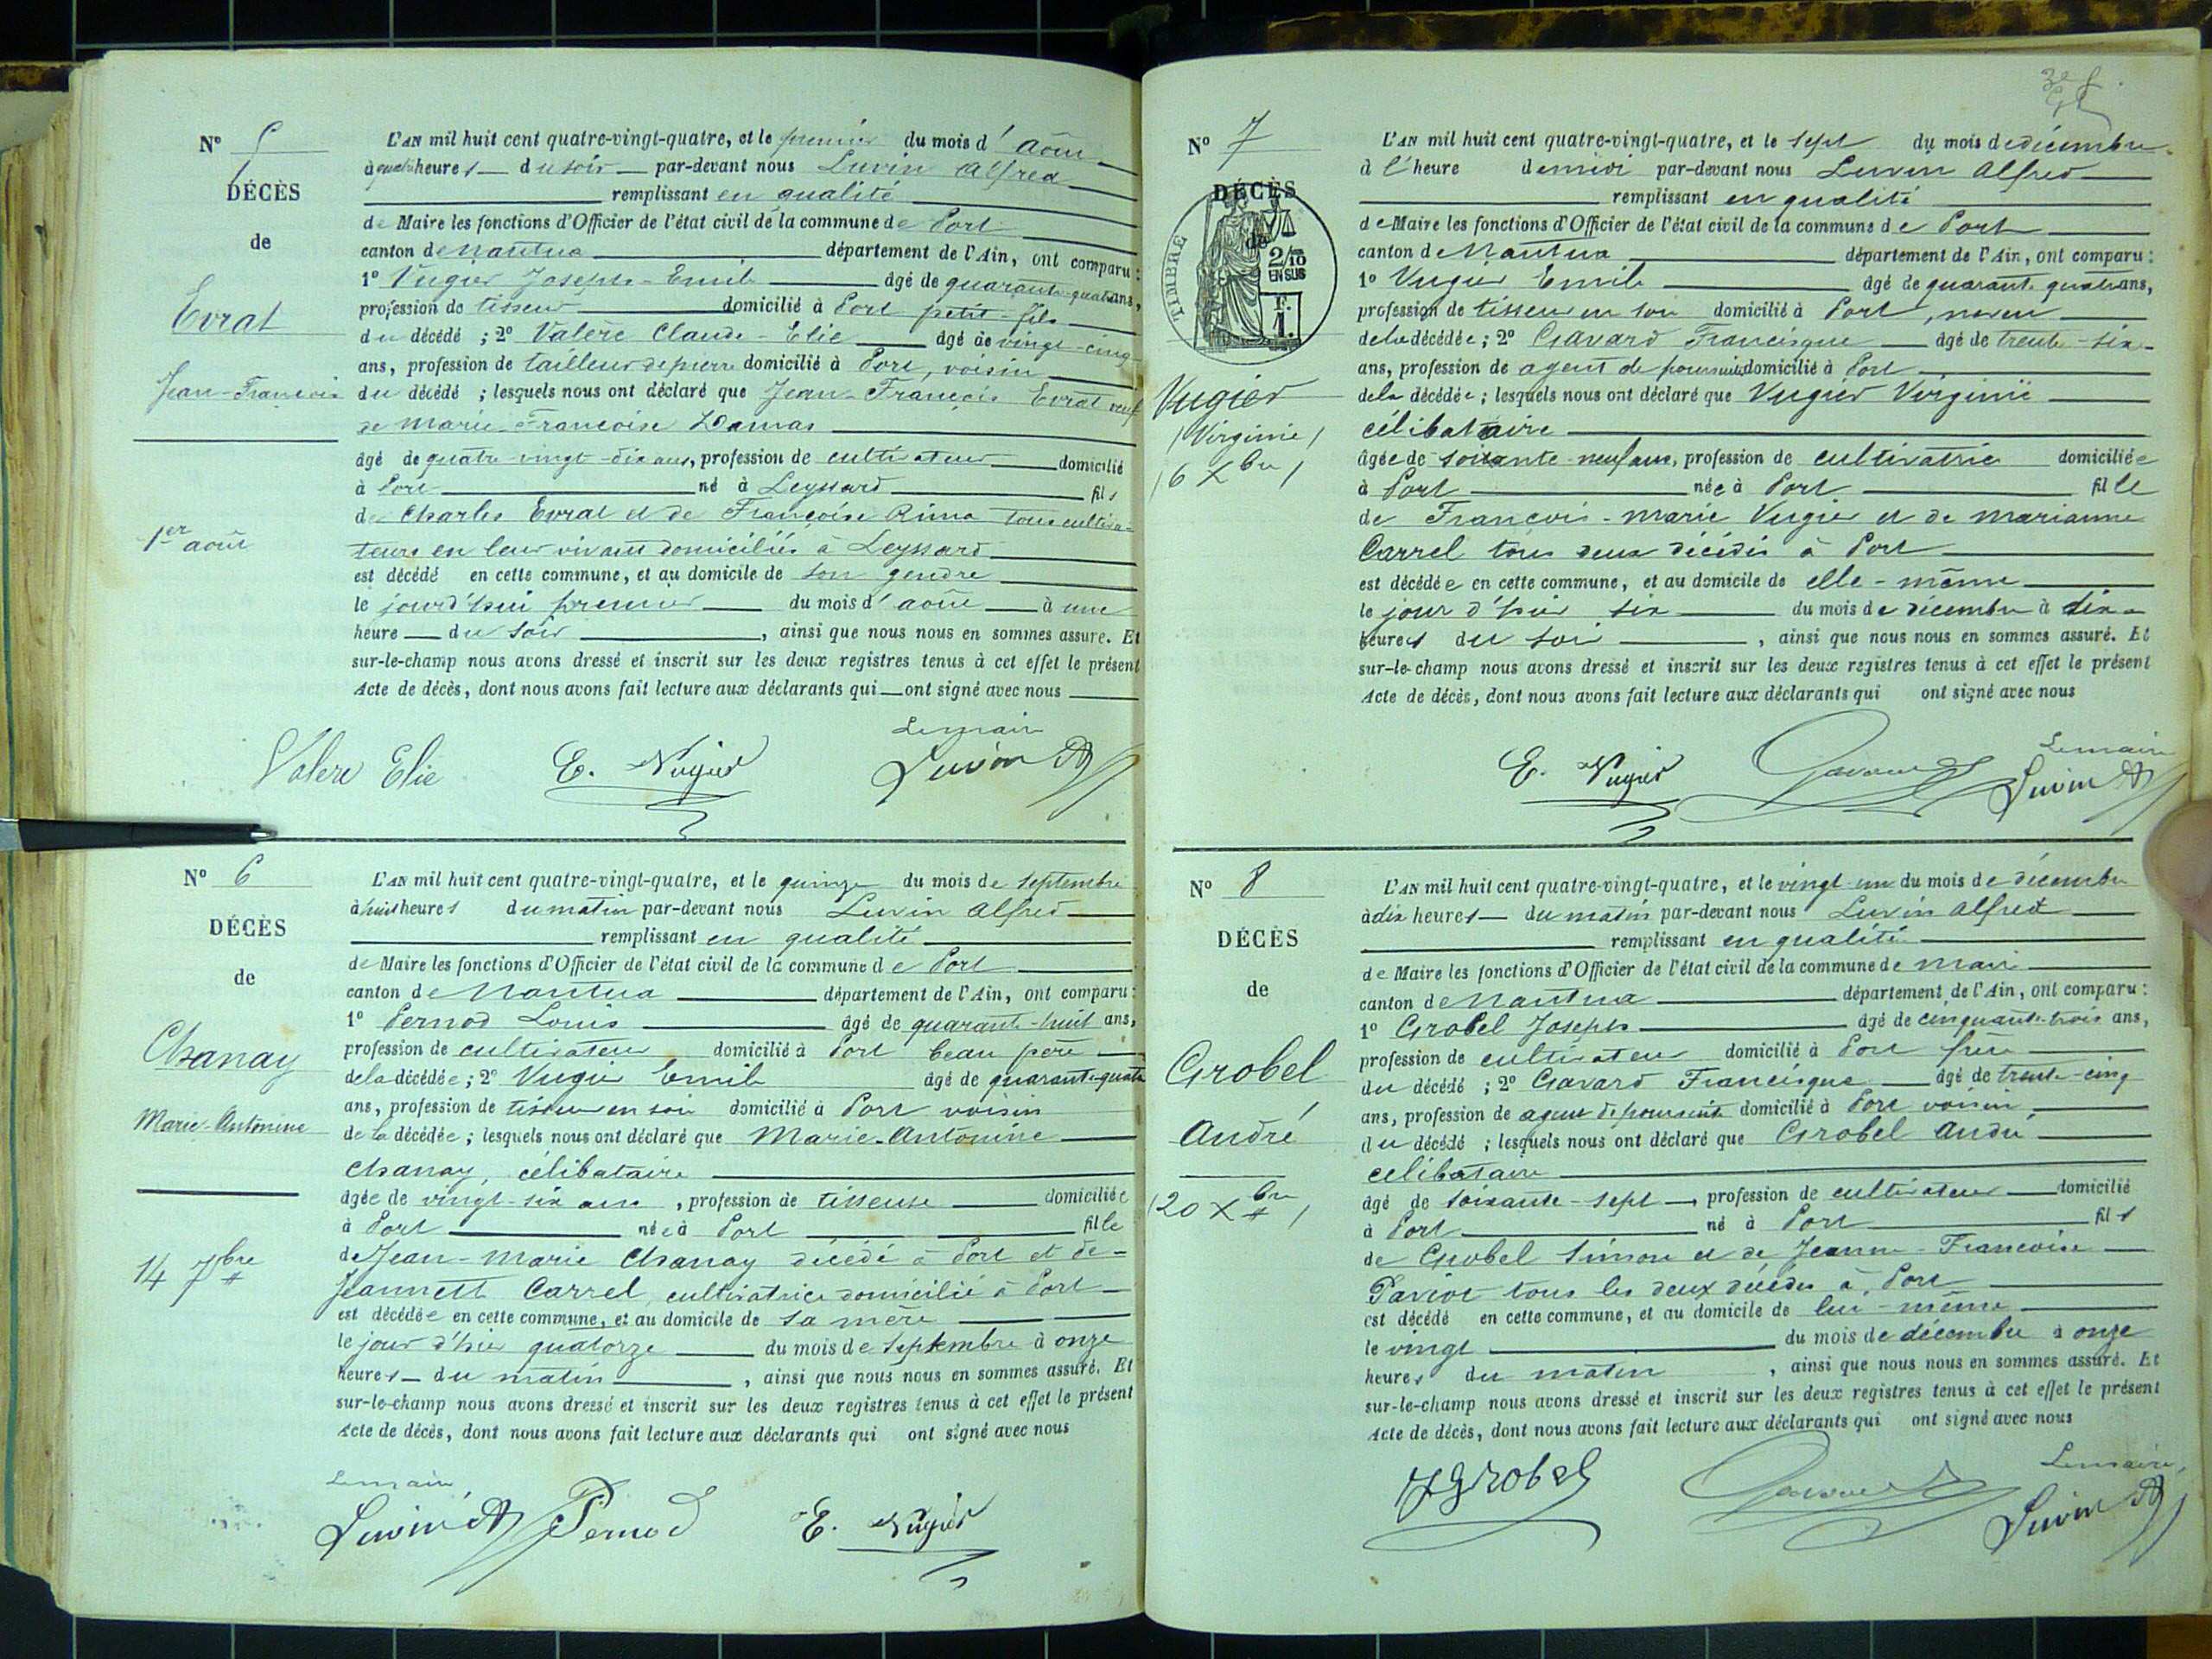 N° 5
DÉCÈS
de
Evrat
Jean-François
1er août
L'AN mil huit cent quatre-vingt-quatre, et le premier du mois d'août
à quatre heures du soir par-devant nous Luvin Alfred
remplissant en qualité
de Maire les fonctions d'Officier de l'état civil de la commune de Port
canton de Nantua département de l'Ain, ont comparu :
1° Vugier Joseph-Emile âgé de quarante-quatre ans,
profession de tisseur domicilié à Port petit-fils
du décédé ; 2° Valère Claude-Elie âgé de vingt-cinq
ans, profession de tailleur de pierre domicilié à Port, voisin
du décédé ; lesquels nous ont déclaré que Jean François Evrat veuf
de Marie-Françoise Damas
âgé de quatre-vingt-dix ans, profession de cultivateur domicilié
à Port né à Leyssard fils
de Charles Evrat et de Françoise Rima tous cultiva-
teurs en leur vivant domiciliés à Leyssard
est décédé en cette commune, et au domicile de son gendre
le jourd'hui premier du mois d'août à une
heure du soir , ainsi que nous nous en sommes assuré. Et
sur-le-champ nous avons dressé et inscrit sur les deux registres tenus à cet effet le présent
Acte de décès, dont nous avons fait lecture aux déclarants qui ont signé avec nous
Le maire
Valere Elie E. Vugier Luvin A
N° 6
DÉCÈS
de
Chanay
Marie-Antonine
14 7bre
L'AN mil huit cent quatre-vingt-quatre, et le quinze du mois de septembre
à huit heures du matin par-devant nous Luvin Alfred
remplissant en qualité
de Maire les fonctions d'Officier de l'état civil de la commune de Port
canton de Nantua département de l'Ain, ont comparu :
1° Pernod Louis âgé de quarante-huit ans,
profession de cultivateur domicilié à Port beau père
de la décédée ; 2° Vugier Emile âgé de quarante-quatre
ans, profession de tisseur en soie domicilié à Port voisin
de la décédée ; lesquels nous ont déclaré que Marie-Antonine
Chanay, célibataire
âgée de vingt-six ans , profession de tisseuse domiciliée
à Port née à Port fille
de Jean-Marie Chanay décédé à Port et de
Jeannett Carrel, cultivatrice domicilié à Port
est décédée en cette commune, et au domicile de sa mère
le jour d'hier quatorze du mois de septembre à onze
heures du matin , ainsi que nous nous en sommes assuré. Et
sur-le-champ nous avons dressé et inscrit sur les deux registres tenus à cet effet le présent
Acte de décès, dont nous avons fait lecture aux déclarants qui ont signé avec nous
Le maire,
Luvin A Pernod E. Vugier
N° 7
DÉCÈS
de
TIMBRE
2/10
EN SUS
F.
1.
Vugier
(Virginie)
(6 Xbre)
L'AN mil huit cent quatre-vingt-quatre, et le sept du mois de décembre
à l'heure de midi par-devant nous Luvin Alfred
remplissant en qualité
de Maire les fonctions d'Officier de l'état civil de la commune de Port
canton de Nantua département de l'Ain, ont comparu :
1° Vugier Emile âgé de quarante quatre ans,
profession de tisseur en soie domicilié à Port, neveu
de la décédée ; 2° Gavard Francisque âgé de trente-six
ans, profession de agent de poursuites domicilié à Port
de la décédée ; lesquels nous ont déclaré que Vugier Virginie
célibataire
âgée de soixante-neuf ans, profession de cultivatrice domiciliée
à Port née à Port fille
de François-Marie Vugier et de Marianne
Carrel tous deux décédés à Port
est décédée en cette commune, et au domicile de elle-même
le jour d'hier six du mois de décembre à dix
heures du soir , ainsi que nous nous en sommes assuré. Et
sur-le-champ nous avons dressé et inscrit sur les deux registres tenus à cet effet le présent
Acte de décès, dont nous avons fait lecture aux déclarants qui ont signé avec nous
Le maire
E. Vugier Gavard Luvin A
N° 8
DÉCÈS
de
Grobel
André
(20 Xbre)
L'AN mil huit cent quatre-vingt-quatre, et le vingt-un du mois de décembre
à dix heures du matin par-devant nous Luvin Alfred
remplissant en qualité
de Maire les fonctions d'Officier de l'état civil de la commune de mair
canton de Nantua département de l'Ain, ont comparu :
1° Grobel Joseph âgé de cinquante-trois ans,
profession de cultivateur domicilié à Port frère
du décédé ; 2° Gavard Francisque âgé de trente-cinq
ans, profession de agent de poursuite domicilié à Port voisin,
du décédé ; lesquels nous ont déclaré que Grobel André
célibataire
âgé de soixante-sept , profession de cultivateur domicilié
à Port né à Port fils
de Grobel Simon et de Jeanne-Françoise
Paviot tous les deux décédés à Port
est décédé en cette commune, et au domicile de lui-même
le vingt du mois de décembre à onze
heures du matin , ainsi que nous nous en sommes assuré. Et
sur-le-champ nous avons dressé et inscrit sur les deux registres tenus à cet effet le présent
Acte de décès, dont nous avons fait lecture aux déclarants qui ont signé avec nous
Le maire,
J Grobel Gavard Luvin A